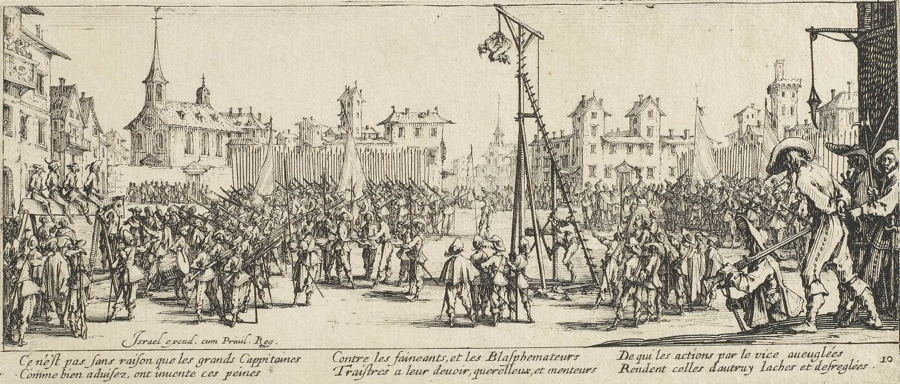 Israel excud. cum Priuil. Reg.
Ce n'est pas sans raison que les grands Cappitaines
Comme bien aduisez, ont inuente ces peines
Contre les faineants, et les Blasphemateurs
Traistres a leur deuoir, querelleux, et menteurs
De qui les actions par le vice aueuglées
Rendent celles dautruy laches et desreglées.
10